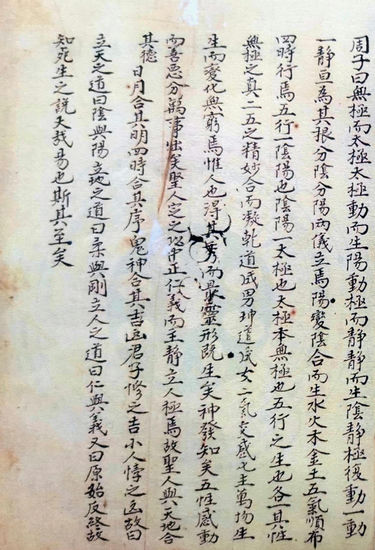 周子曰無極而太極太極動而生陽動極而靜靜而生陰靜極復動一動
一靜亘為其根分陰分陽兩儀立焉陽變陰合而生水火木金土五氣順布
四時行焉五行一陰陽也陰陽一太極也太極本無極也五行之生也各一其性
無極之真二五之精妙合而凝乾道成男坤道成女二氣交感化生萬物生
生而變化無窮焉惟人也得其秀而最靈形既生矣神發知矣五性感動
而善惡分萬事出矣聖人定之以中正仁義而主靜立人極焉故聖人與天地合
其德日月合其明四時合其序鬼神合其吉凶君子修之吉小人悖之凶故曰
立天之道曰陰與陽立地之道曰柔與剛立人之道曰仁與義又曰原始反終故
知死生之說大哉易也斯其至矣